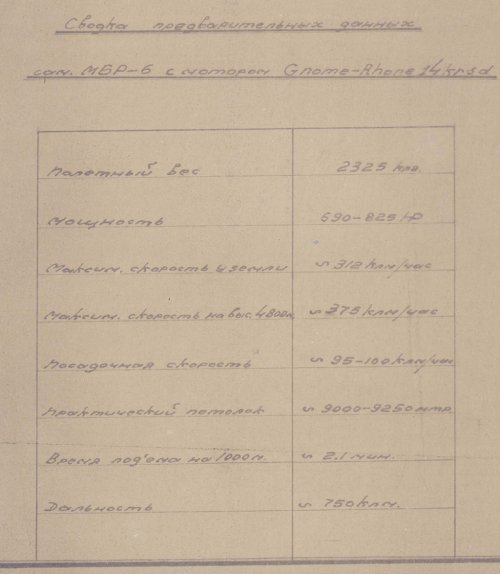 Сводка предварительных данных
сам. МБР-6 с мотором Gnome-Rhone 14krsd
Полетный вес 2325 кгр.
Мощность 690-825 HP
Максим. скорость у земли ~ 312 клм/час
Максим. скорость на выс. 4800м. ~ 375 клм/час
Посадочная скорость ~ 95-100 клм/час
Практический потолок ~ 9000-9250 мтр
Время под'ема на 1000м. ~ 2.1 мин.
Дальность ~ 750 клм.